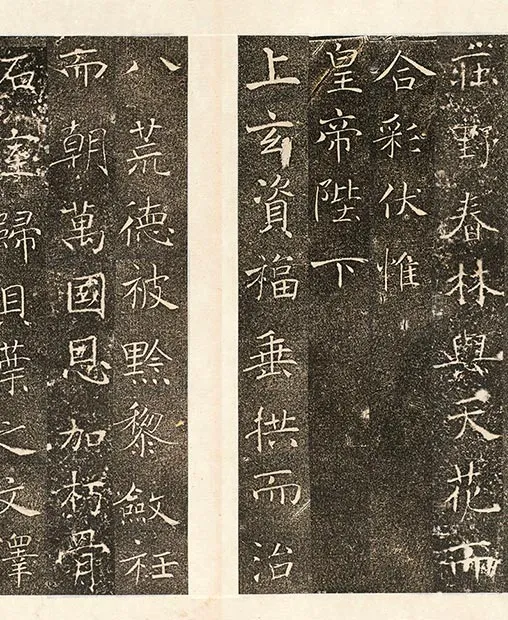 莊野春林與天花而
合彩伏惟
皇帝陛下
上玄資福垂拱而治
八荒德被黔黎斂衽
而朝萬國恩加朽骨
石室歸貝葉之文澤